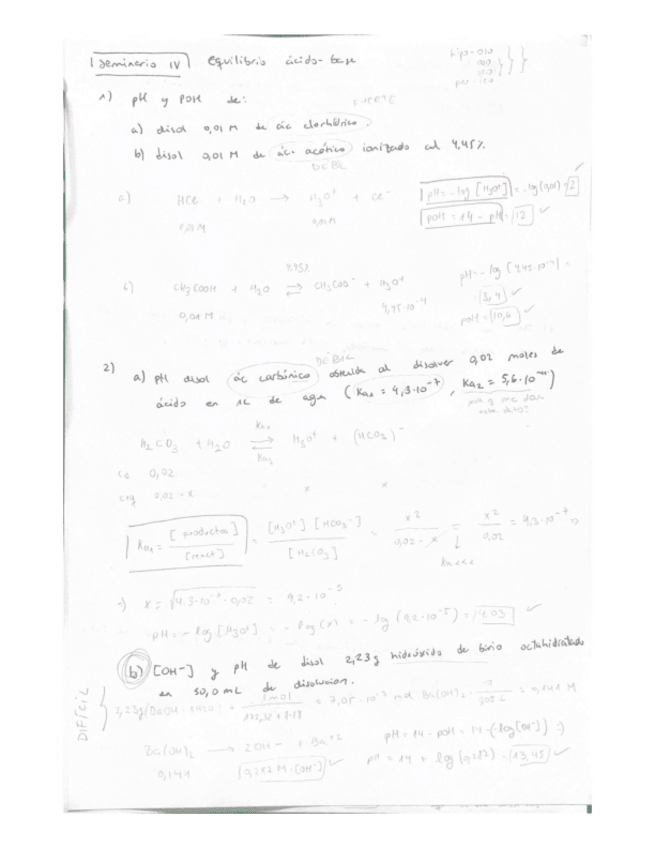 Seminario IV Equilibrio ácido-base
1) pH y pOH de:
a) disol 0,01 M de ác clorhídrico.
b) disol 0,01 M de ác. acético ionizado al 4,45%.
DÉBIL
a) HCl + H2O → H3O+ + Cl-
0,01M 0,01M
pH = -log [H3O+] = -log(0,01) = 2 ✓
pOH = 14 - pH = 12 ✓
4,45%
b) CH3COOH + H2O ⇌ CH3COO- + H3O+
0,01 M 4,45·10-4
pH = -log (4,45·10-4) =
3,4 ✓
pOH = 10,6 ✓
DÉBIL
2) a) pH disol ác carbónico obtenida al disolver 0,02 moles de
ácido en 1L de agua (Ka1 = 4,3·10-7, Ka2 = 5,6·10-11)
H2CO3 + H2O ⇌ H3O+ + (HCO3)-
Ka1
Ka2
Co 0,02
Ceq 0,02-x x x
Ka1 = [productos] / [react] = [H3O+] [HCO3-] / [H2CO3] = x2 / 0,02-x = x2 / 0,02 = 4,3·10-7 ⇒
⇒ x = √4,3·10-7·0,02 = 9,2·10-5
pH = -log [H3O+] = -log(x) = -log (9,2·10-5) = 4,03 ✓
b) [OH-] y pH de disol 2,23g hidróxido de bario octahidratado
en 50,0 mL de disolución.
DIFÍCIL
= 7,05·10-3 mol Ba(OH)2 = 0,141 M
Ba(OH)2 → 2OH- + Ba+2
0,141 0,282 M = [OH-] ✓
pH = 14 - pOH = 14 - (-log[OH-]) ⇒
pH = 14 + log (0,282) = 13,45 ✓